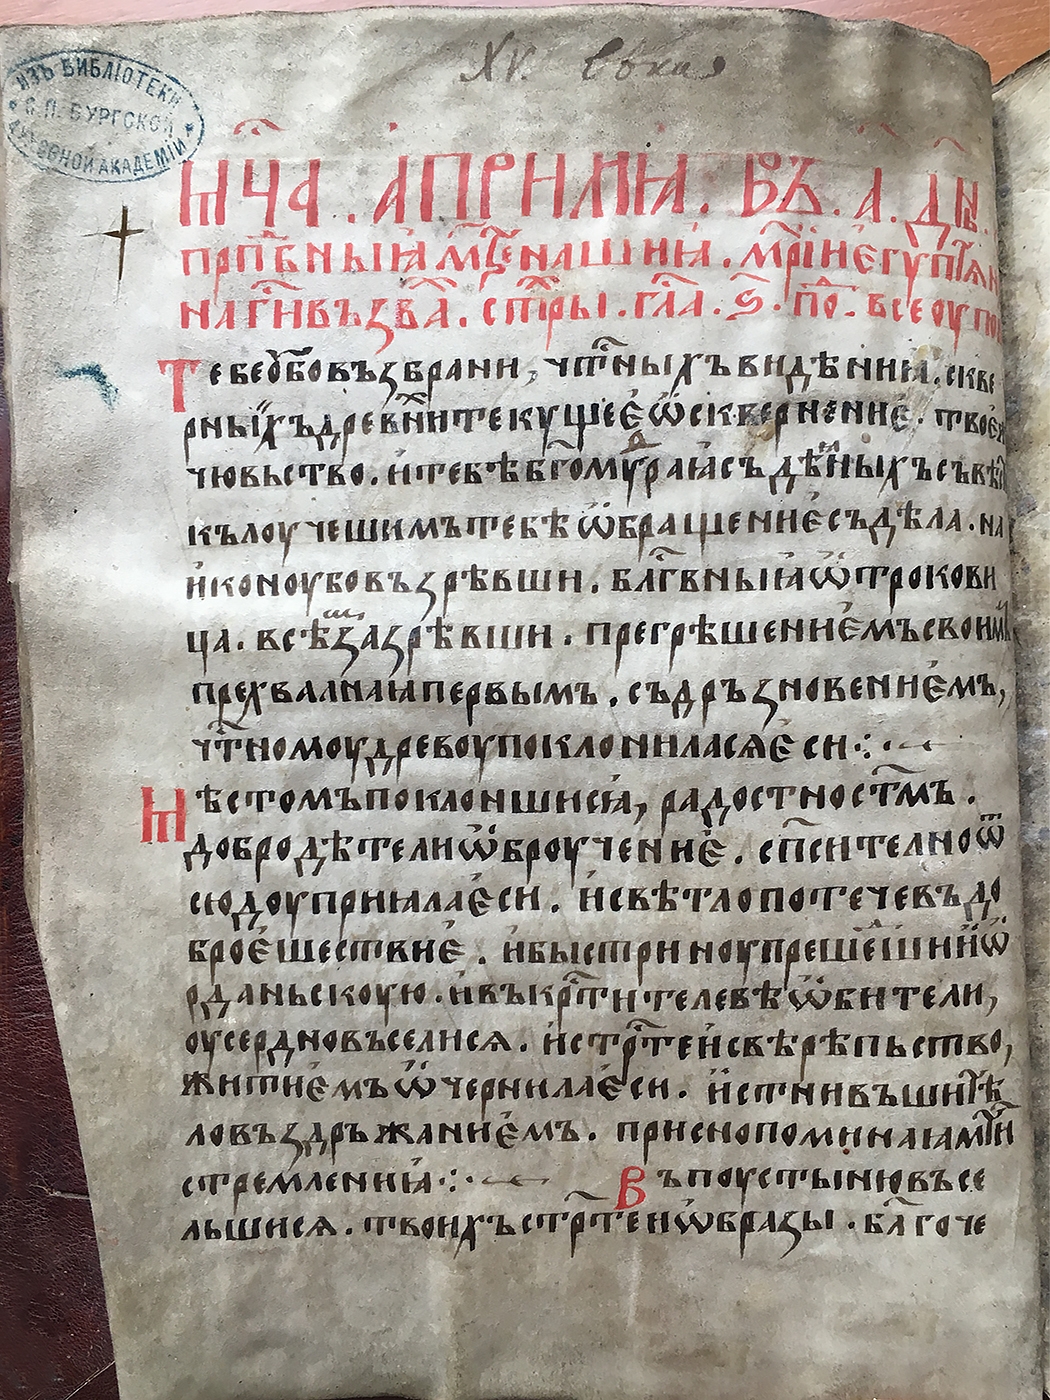 XV. века
ИЗЪ БИБЛIОТЕКИ
С. П. БУРГСКОЙ
ДУХОВНОЙ АКАДЕМIИ
мⷭ҇ца . априлиꙗ . въ . а҃ . дн҃ь .
прпⷣбныꙗ мт҃ре нашиꙗ . мр҃iи н егуптѧ
на гⷭ҇и възва . стⷯры . гла . ѕ҃ . поⷣ . все оупо
Тебе оубо възбрани , чтⷭ҇ныхъ видѣниꙗ . скве
рныхъ древни текущее ѡсквернение . твое ж
чювьство . и тебѣ бг҃омⷣураꙗ съдѣныхъ съвѣ
къ лоучешимъ тебѣ ѡбращение съдѣла . на
иконоу бо възрѣвши . блг҃вныꙗ ѿтрокови
ца . всѣ зазрѣвши . прегрѣшениемъ своимъ
прехвалнаꙗ первымъ . съ дръзновениемъ ,
чтⷭ҇номоу древоу поклонилася еси ⁘
Мѣстомъ поклоншисꙗ , радостно стм҃ъ .
добродѣтели ѡброучение . спⷭ҇ително ѿ
сюдоу приꙗла еси . и свѣтло потече въ до
брое шествие . и быстриноу прешеⷣши иѡ
рданьскоую . и въ крⷭ҇тителевѣ ѡбители ,
оусердно въселися . и стрⷭ҇тей свѣрѣпьство ,
житиемъ ѡчернила еси . истнивъши тѣ
ло въздръжаниемъ . приснопоминаꙗ мт҃и
стремлениꙗ ⁘ Въ поустыню въсе
льшися . твоихъ стрⷭ҇теи ѡбразы . блг҃оче